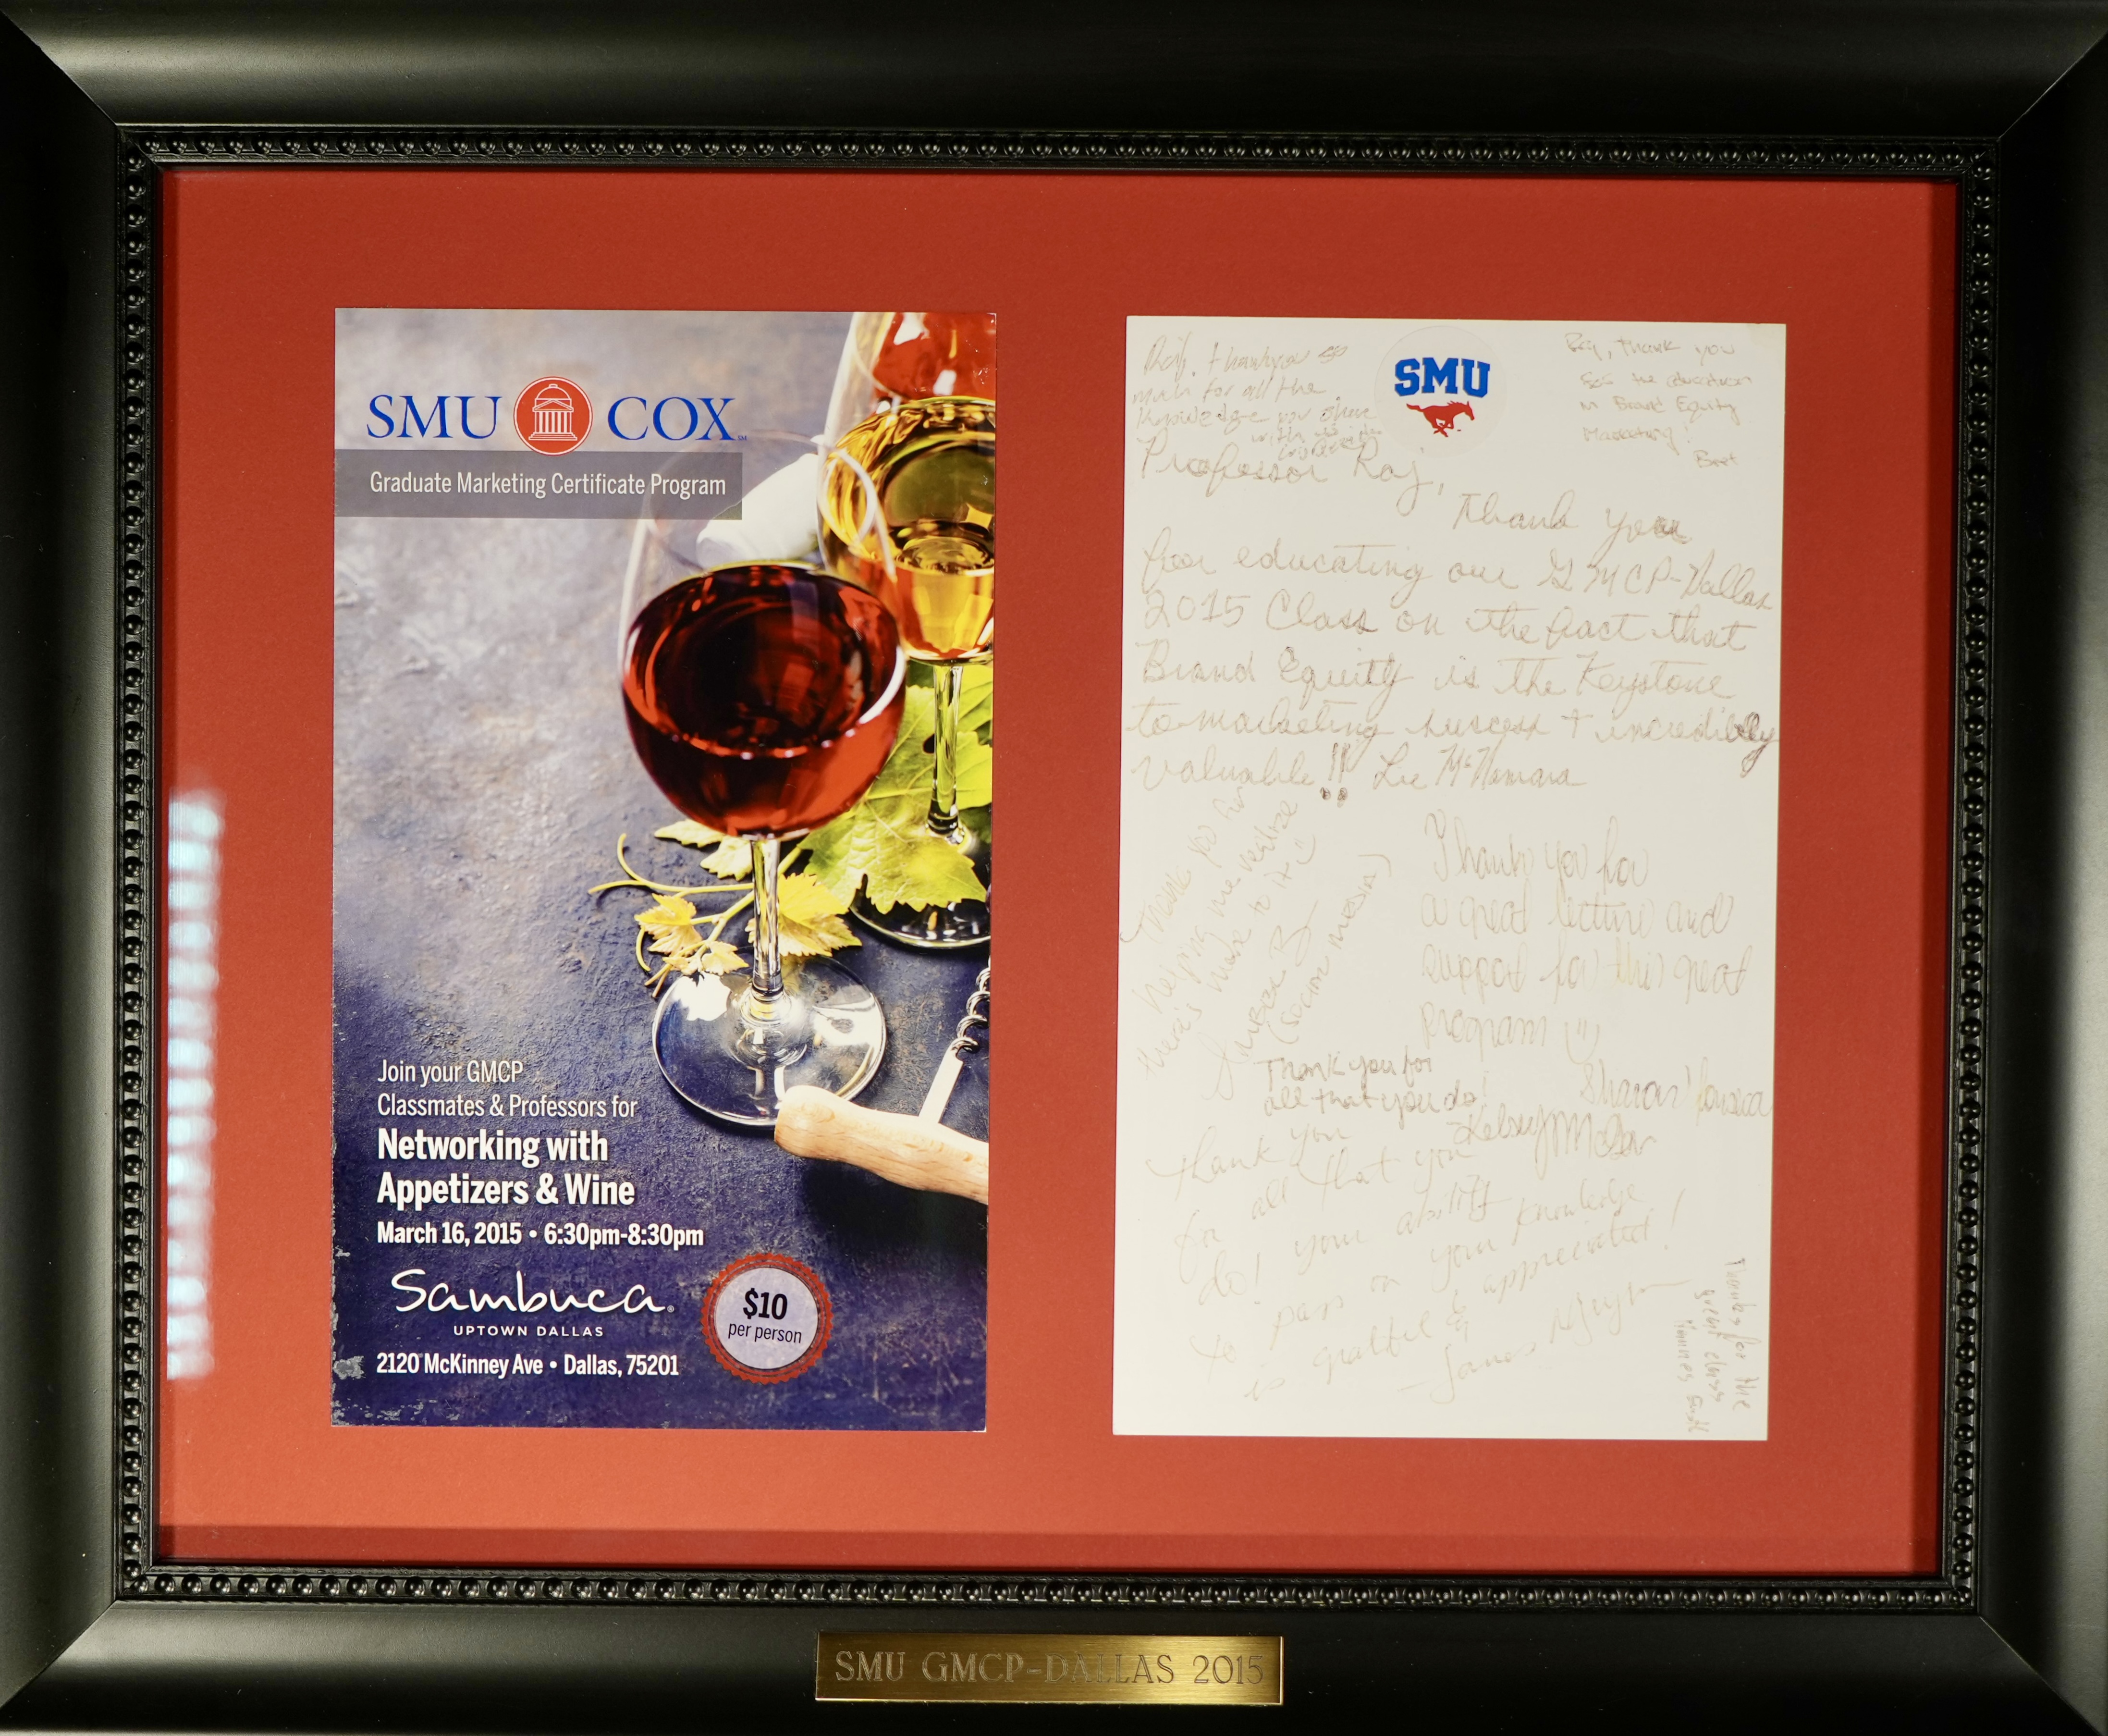 SMU COX
Graduate Marketing Certificate Program
Join your GMCP
Classmates & Professors for
Networking with
Appetizers & Wine
March 16, 2015 • 6:30pm-8:30pm
Sambuca®
UPTOWN DALLAS
2120 McKinney Ave • Dallas, 75201
$10
per person
SMU
Raj, thank you so
much for all the
knowledge you share
with us
Raj, Thank you
for the education
in Brand Equity
Marketing!
Bret
Professor Raj,
Thank you
for educating our GMCP-Dallas
2015 Class on the fact that
Brand Equity is the Keystone
to marketing success + incredibly
valuable!!! Lee McNamara
Thank you for
helping me realize
there's more to it
(social media)
Thank you for
a great lecture and
support for this great
program
Sharon Fonseca
Thank you for
all that you do!
Kelsey
Thank you
for all that you
do! your ability
to pass on your knowledge
is grateful & appreciated!
James
Thanks for the
great class
SMU GMCP-DALLAS 2015